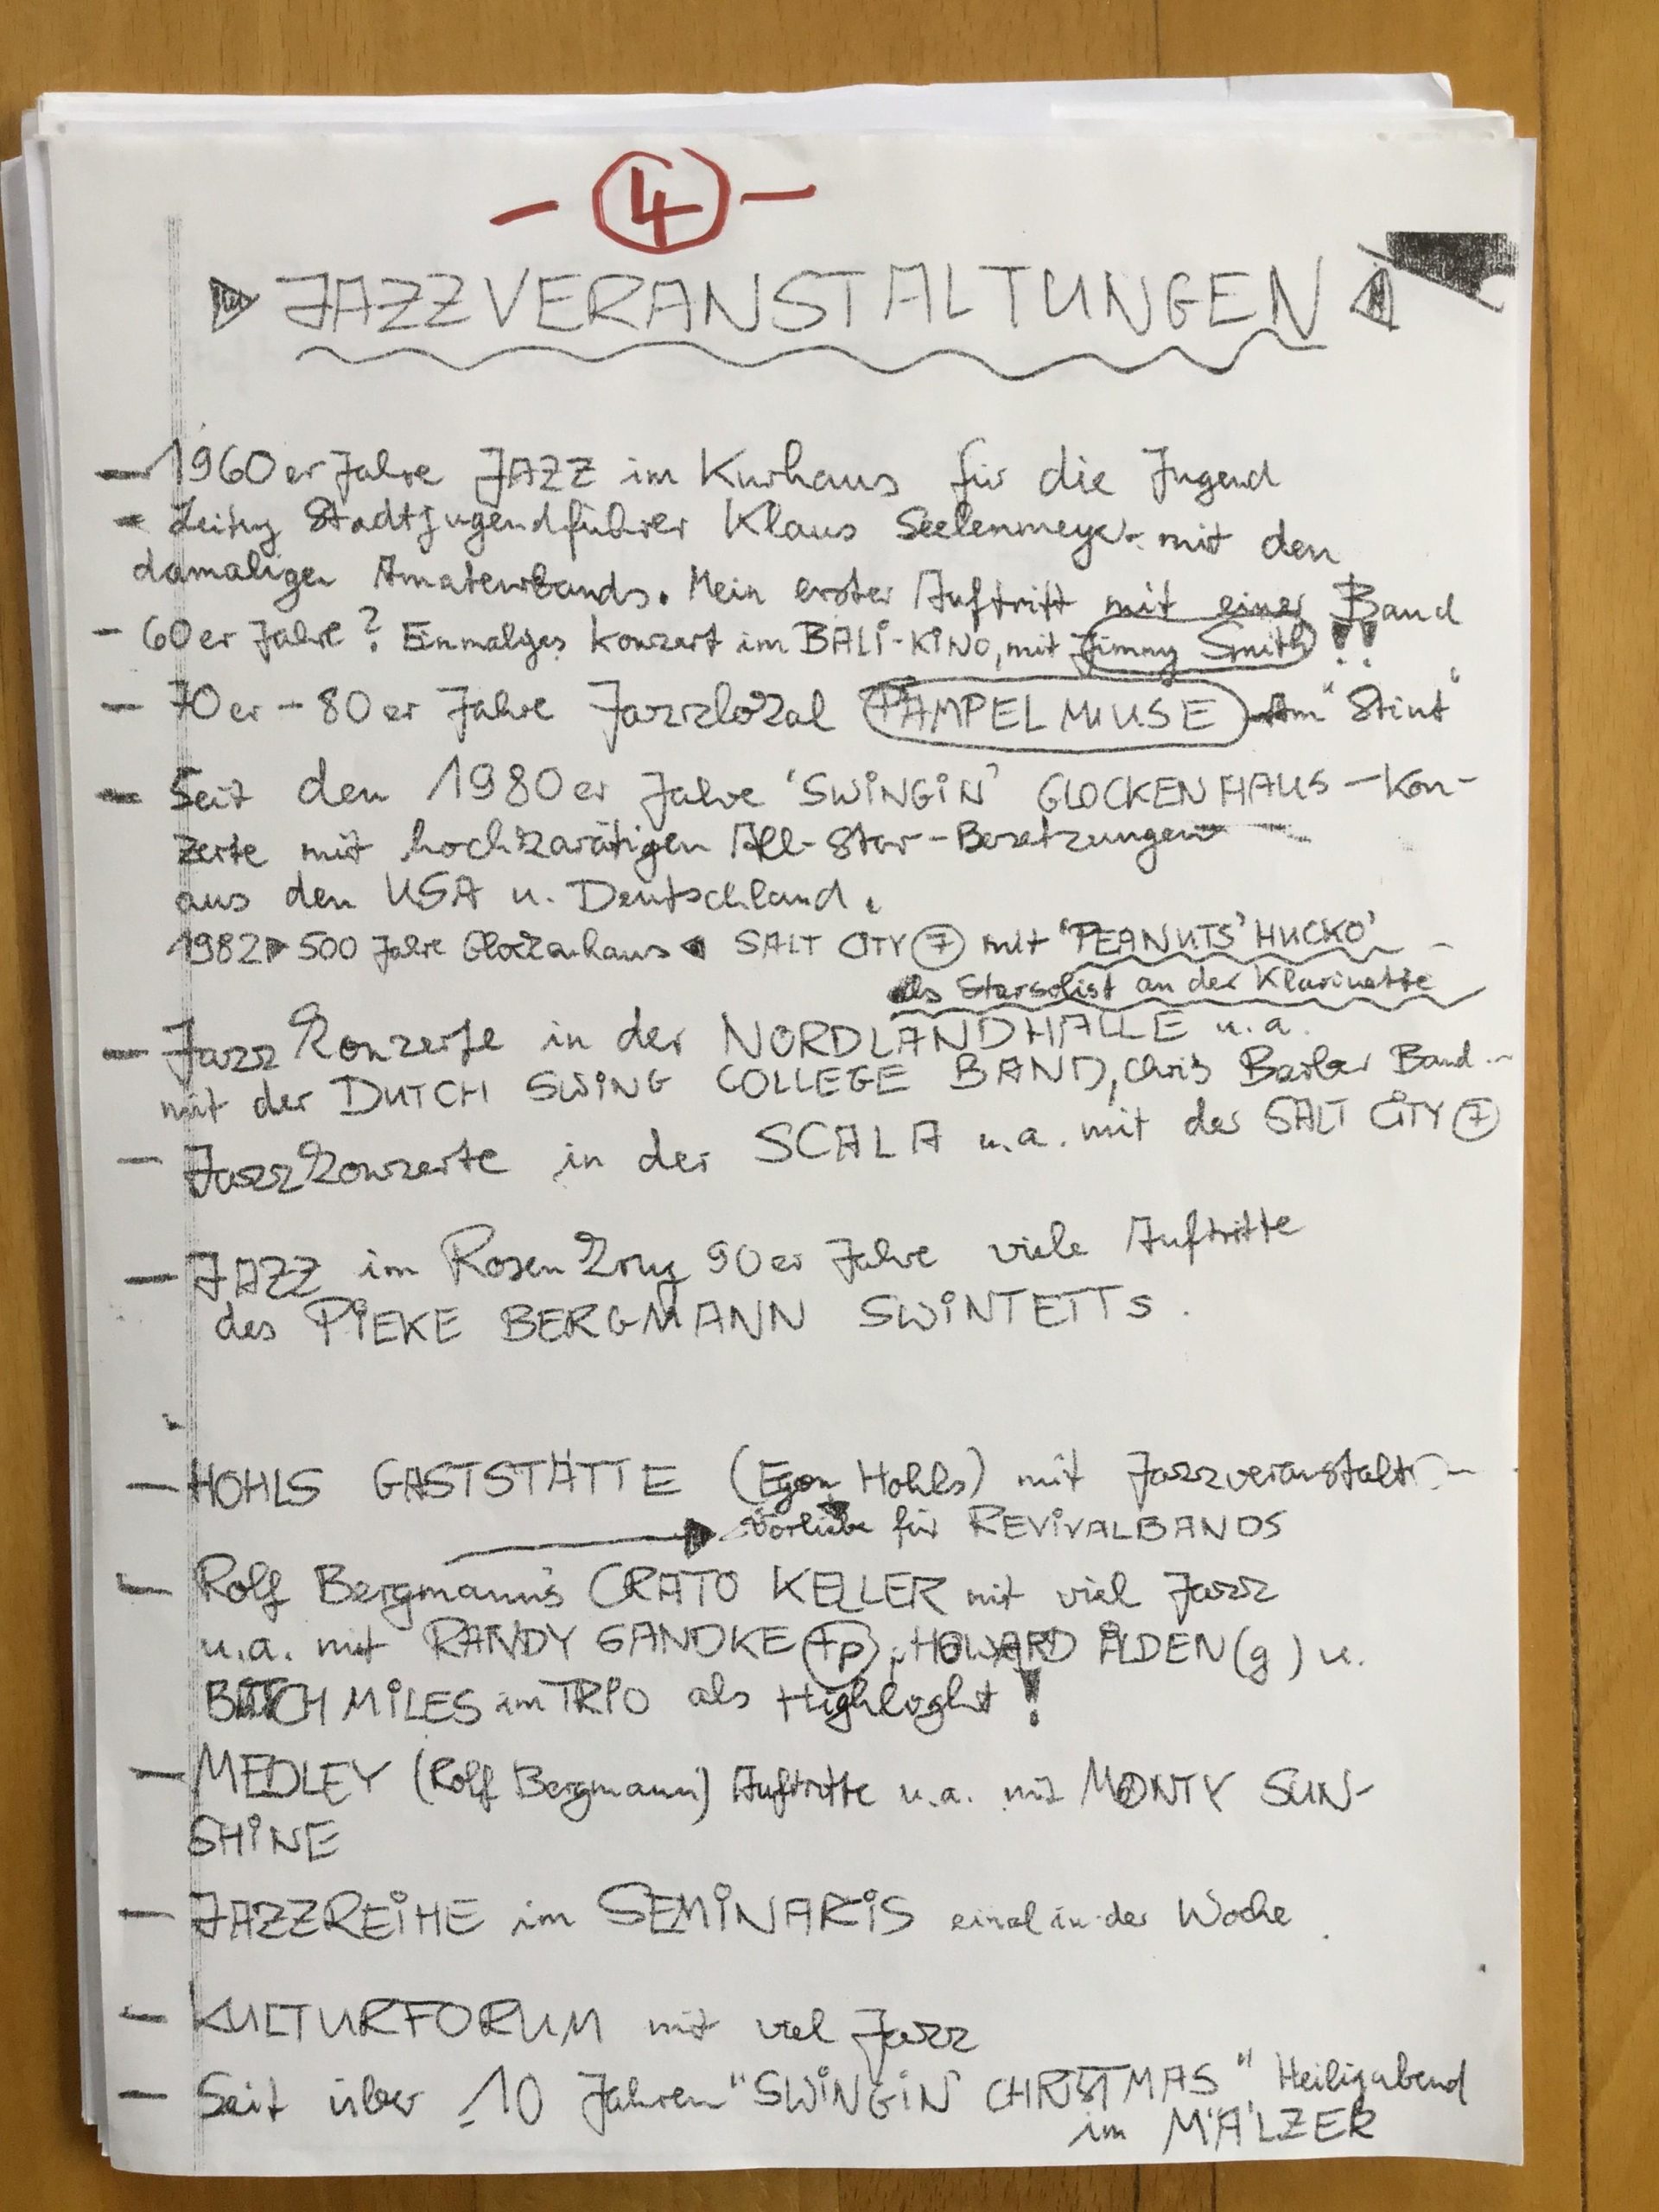 - 4 -
JAZZVERANSTALTUNGEN
- 1960er Jahre JAZZ im Kurhaus für die Jugend
- Leitung Stadtjugendführer Klaus Seelenmeyer mit den
damaligen Amateurbands. Mein erster Auftritt mit einer Band
- 60er Jahre? Einmaliges Konzert im BALI-KINO, mit Jimmy Smith !!
- 70er - 80er Jahre Jazzlokal PAMPELMUSE Am "Stint"
- Seit den 1980er Jahre 'SWINGIN' GLOCKENHAUS - Kon-
zerte mit hochkarätigen All-Star-Besetzungen
aus den USA u. Deutschland.
1982 500 Jahre Glockenhaus SALT CITY 7 mit 'PEANUTS' HUCKO'
als Starsolist an der Klarinette
- Jazz Konzerte in der NORDLANDHALLE u.a.
mit der DUTCH SWING COLLEGE BAND, Chris Barber Band..
- Jazzkonzerte in der SCALA u.a. mit der SALT CITY 7
- JAZZ im Rosenkrug 90er Jahre viele Auftritte
des PIEKE BERGMANN SWINTETTs.
- HOHLS GASTSTÄTTE (Egon Hohls) mit Jazzveranstalt.
Vorliebe für REVIVALBANDS
- Rolf Bergmann's CRATO KELLER mit viel Jazz
u.a. mit RANDY SANDKE (tp), HOWARD ALDEN (g) u.
BUTCH MILES im TRIO als Highlight!
- MEDLEY (Rolf Bergmann) Auftritte u.a. mit MONTY SUN-
SHINE
- JAZZREIHE im SEMINARIS einal in der Woche.
- KULTURFORUM mit viel Jazz
- Seit über 10 Jahren "SWINGIN' CHRISTMAS" Heiligabend
im MÄLZER